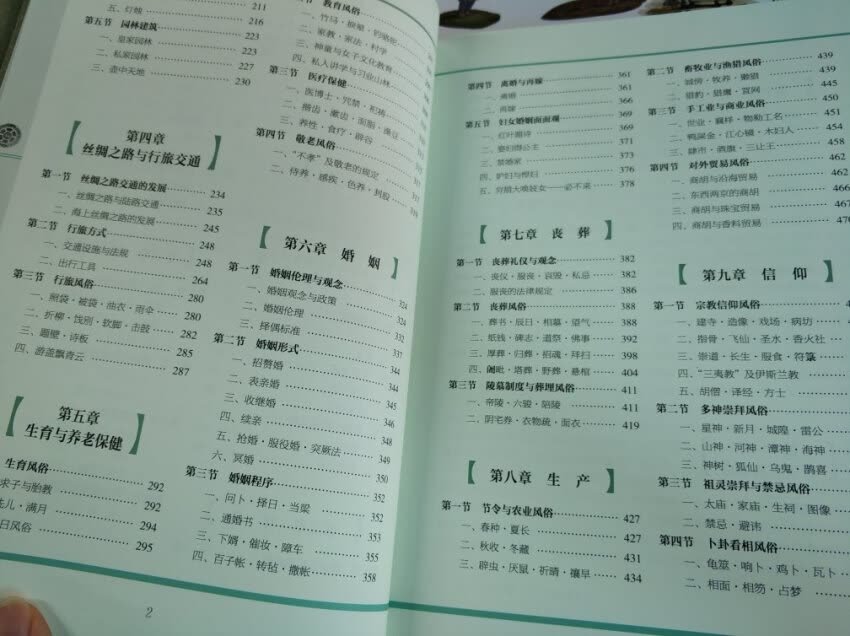 五、灯烛 211
216
第五节 园林建筑 223
一、皇家园林 223
二、私家园林 227
三、壶中天地 230
第四章
丝绸之路与行旅交通
第一节 丝绸之路交通的发展 234
一、丝绸之路与陆路交通 235
二、海上丝绸之路的发展 245
第二节 行旅方式 248
一、交通设施与法规 248
二、出行工具 264
第三节 行旅风俗 280
一、照袋·被袋·油衣·雨伞 280
二、折柳·饯别·软脚·击鼓 282
三、题壁·诗板 285
四、游盖飘青云 287
第五章
生育与养老保健
生育风俗 292
求子与胎教 292
洗儿·满月 294
日风俗 295
教育风俗
一、竹马
二、家教·家法·科学
三、神童与女子文化教育
四、私人讲学与习业山林
第三节 医疗保健
一、医博士·咒禁·祀祷
二、揩齿·漱齿·面脂·澡豆
三、养性·食疗·辟谷
第四节 敬老风俗
一、“不孝”及敬老的规定
二、侍养·感疾·色养·刲股
第六章 婚姻
第一节 婚姻伦理与观念 324
一、婚姻观念与政策 324
二、婚姻伦理 332
三、择偶标准 337
第二节 婚姻形式 344
一、招赘婚 344
二、表亲婚 345
三、收继婚 346
四、续亲 348
五、抢婚·服役婚·突厥法 349
六、冥婚 350
第三节 婚姻程序 352
一、问卜·择日·当梁 352
二、通婚书 353
三、下婿·催妆·障车 355
四、百子帐·转毡·撒帐 358
2
第四节 离婚与再嫁 361
一、离婚 361
二、再嫁 366
第五节 妇女婚姻面面观 369
一、红叶题诗 369
二、娶妇得公主 371
三、禁婚家 373
四、妒妇与悍妇 376
五、穷措大唤妓女——必不来 378
第七章 丧葬
第一节 丧葬礼仪与观念 382
一、丧仪·服丧·哀毁·私忌 382
二、服丧的法律规定 386
第二节 丧葬风俗 388
一、葬书·辰日·相墓·望气 388
二、纸钱·碑志·道祭·佛事 392
三、厚葬·归葬·招魂·拜扫 398
四、阇毗·塔葬·野葬·悬棺 404
第三节 陵墓制度与葬埋风俗 411
一、帝陵·六骏·陪陵 411
二、阴宅券·衣物疏·面衣 419
第八章 生产
第一节 节令与农业风俗 427
一、春种·夏长 427
二、秋收·冬藏 431
三、辟虫·厌鼠·祈晴·禳旱 434
第二节 畜牧业与渔猎风俗 439
一、城傍·牧养·獭猎 439
二、猎豹·猎鹰·罝网 445
第三节 手工业与商业风俗 450
一、世业·襄样·物勒工名 451
二、鸭屎金·江心镜·木妇人 454
三、肆市·酒旗·三让王 458
第四节 对外贸易风俗 462
一、商胡与沿海贸易 462
二、东西两京的商胡 466
三、商胡与珠宝贸易
四、商胡与香料贸易
第九章 信仰
第一节 宗教信仰风俗
一、建寺·造像·戏场·病坊
二、指骨·飞仙·圣水·香火社
三、崇道·长生·服食·符箓
四、“三夷教”及伊斯兰教
五、胡僧·译经·方士
第二节 多神崇拜风俗
一、星神·新月·城隍·雷公
二、山神·河神·潭神·海神
三、神树·狐仙·乌鬼·鹊喜
第三节 祖灵崇拜与禁忌风俗
一、太庙·家庙·生祠·图像
二、禁忌·避讳
第四节 卜卦看相风俗
一、龟筮·响卜·鸡卜·瓦卜
二、相面·相笏·占梦